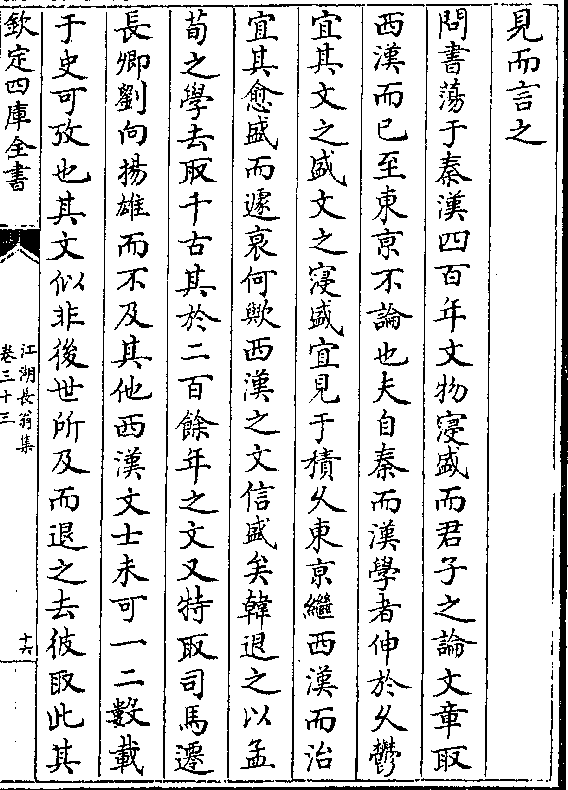 見而言之
問書蕩于秦漢四百年文物寖盛而君子之論文章取
西漢而已至東京不論也夫自秦而漢學者伸於乆鬱
宜其文之盛文之寖盛宜見于積乆東京繼西漢而治
宜其愈盛而遽衰何歟西漢之文信盛矣韓退之以孟
荀之學去取千古其於二百餘年之文又特取司馬遷
長卿劉向揚雄而不及其他西漢文士未可一二數載
于史可攷也其文似非後世所及而退之去彼取此其
欽定四庫全書
江湖長翁集
卷三十三
十六